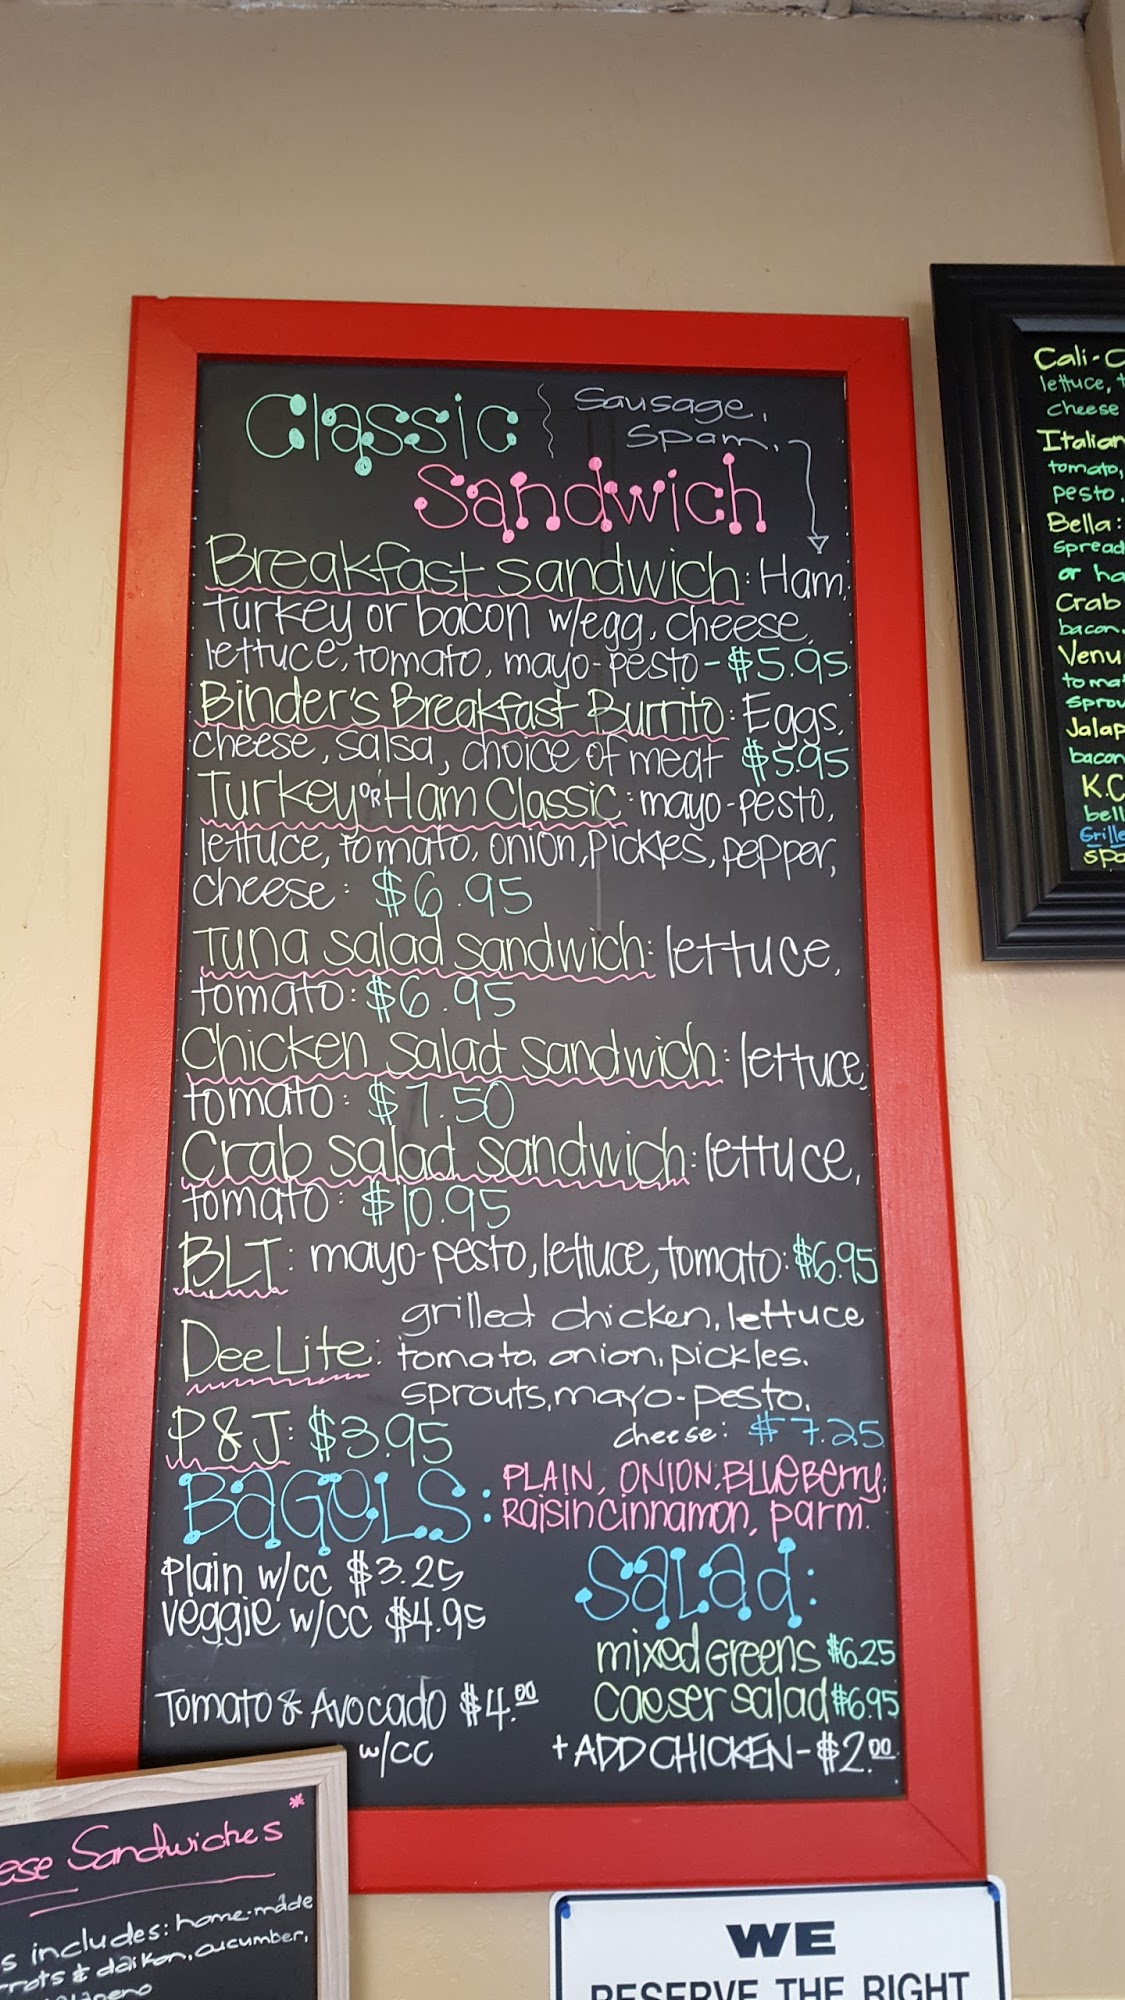 Classic
Sausage,
Spam,
Sandwich
Breakfast sandwich: Ham,
Turkey or bacon w/egg, cheese,
lettuce, tomato, mayo-pesto - $5.95
Binder's Breakfast Burrito: Eggs,
cheese, salsa, choice of meat $5.95
Turkey OR Ham Classic: mayo-pesto,
lettuce, tomato, onion, pickles, pepper,
cheese: $6.95
Tuna salad sandwich: lettuce,
tomato: $6.95
Chicken salad sandwich: lettuce,
tomato: $7.50
Crab salad sandwich: lettuce,
tomato: $10.95
BLT: mayo-pesto, lettuce, tomato: $6.95
DeeLite: grilled chicken, lettuce
tomato, onion, pickles,
sprouts, mayo-pesto,
cheese: $7.25
P&J: $3.95
BAGELS: PLAIN, ONION, BLUEBerry,
Raisin cinnamon, parm.
Plain w/cc $3.25
Veggie w/cc $4.95
Tomato & Avocado $4.00
w/cc
SaLad:
mixed Greens $6.25
Caeser salad $6.95
+ ADD CHICKEN - $2.00
Cali-C
lettuce, t
cheese
Italian
tomato,
pesto.
Bella:
spread
or ha
Crab
bacon,
Venu
tomat
sprou
Jalap
bacon
K.C
bell
Grille
spa
ese Sandwiches *
s includes: home-made
rrots & daikon, cucumber,
WE
RESERVE THE RIGHT